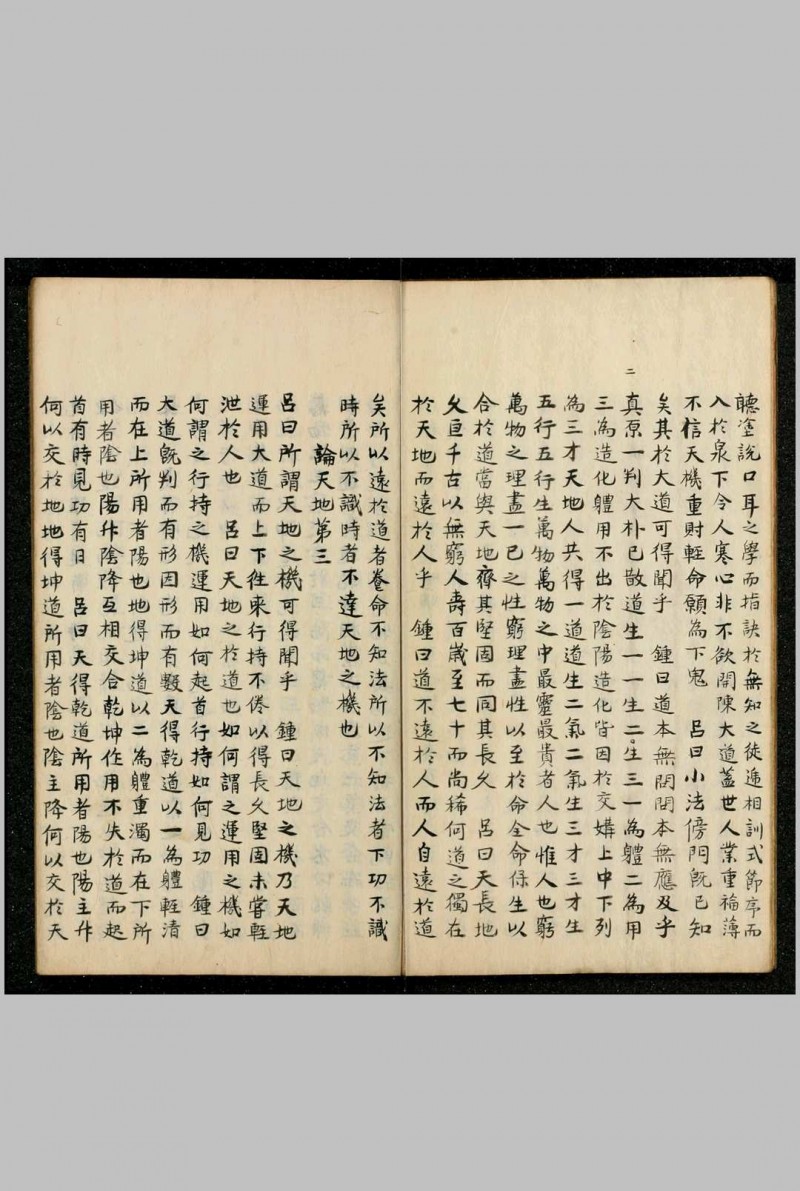 聽塗說口耳之學而指訣於無知之徒遞相訓式節序而
入於泉下令人寒心非不欲開陳大道蓋世人業重福薄
不信天機重財輕命願為下鬼　呂曰小法傍門既已知
矣其於大道可得聞乎　鍾曰道本無問問本無應及乎
二
真原一判大朴已散道生一一生二二生三一為體二為用
三為造化體用不出於陰陽造化皆因於交媾上中下列
為三才天地人共得一道道生二氣二氣生三才三才生
五行五行生萬物萬物之中最靈最貴者人也惟人也窮
萬物之理盡一己之性窮理盡性以至於命全命保生以
合於道當與天地齊其堅固而同其長久　呂曰天長地
久亘千古以無窮人壽百歲至七十而尚稀何道之獨在
於天地而遠於人乎　鍾曰道不遠於人而人自遠於道
矣所以遠於道者養命不知法所以不知法者下功不識
時所以不識時者不達天地之機也
論天地第三
呂曰所謂天地之機可得聞乎　鍾曰天地之機乃天地
運用大道而上下往來行持不倦以得長久堅固未嘗輕
泄於人也　呂曰天地之於道也如何謂之運用之機如
何謂之行持之機運用如何起首行持如何見功　鍾曰
大道既判而有形因形而有數天得乾道以一為體輕清
而在上所用者陽也地得坤道以二為體重濁而在下所
用者陰也陽升陰降互相交合乾坤作用不失於道而起
首有時見功有日　呂曰天得乾道所用者陽也陽主升
何以交於地地得坤道所用者陰也陰主降何以交於天